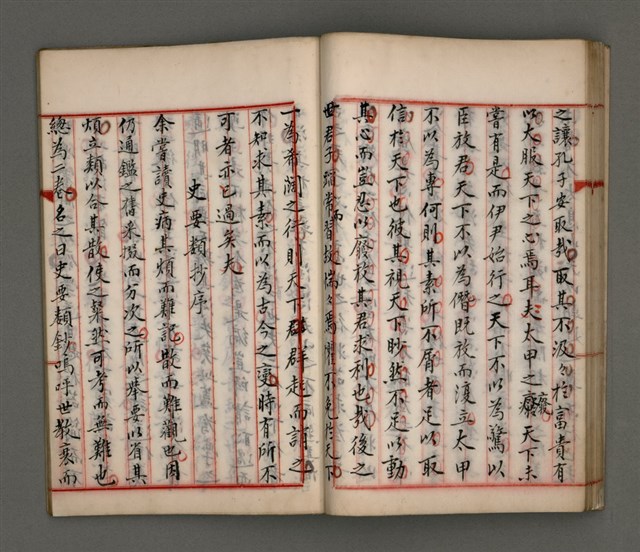 之讓孔子安取哉取其不汲々於富貴有
以大服天下之心焉耳夫太甲之廢天下未
嘗有是而伊尹始行之天下不以為驚以
臣放君天下不以為僭既放而復立太甲
不以為專何則其素所不屑者足以取
信於天下也彼其視天下眇然不足以動
其心而豈忍以廢放其君求利也哉後之
世君子蹈常而習故惴々焉懼不免於天下
一為希闊之行則天下群群起而誚之
不知求其素而以為古今之變時有所不
可者亦已過矣夫
史要類抄序
余嘗讀史病其煩而難記散而難觀也因
仍通鑑之舊采掇而分次之所以舉要以省其
煩立類以合其散使之粲然可考而無難也
總為一卷名之曰史要類鈔嗚呼世教衰而